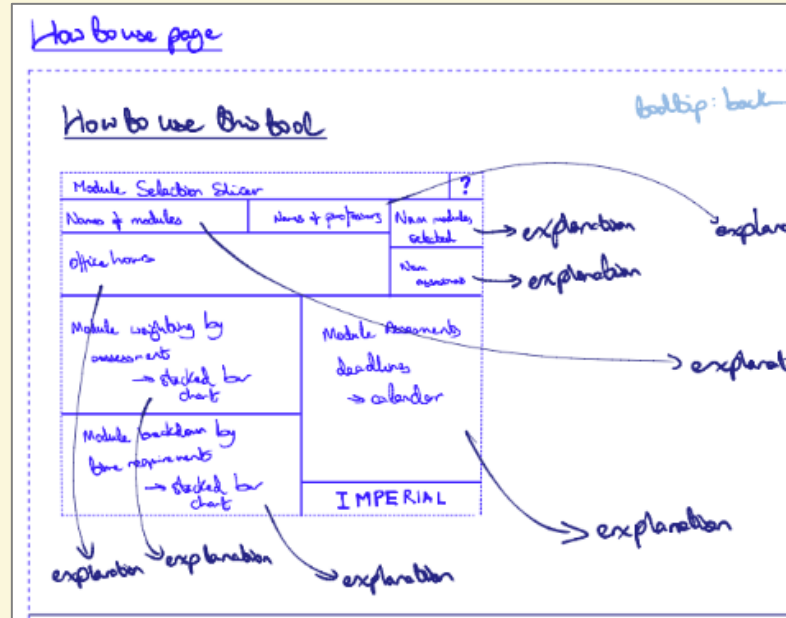 How to use page
How to use this tool
tooltip: back
Module Selection Slicer
?
Names of modules
Names of professors
Num modules
selected
explanation
explana
office hours
Num
explanation
Module weighting by
assessment
→ stacked bar
chart
Module Assessments
deadlines
→ calendar
explanat
Module breakdown by
time requirements
→ stacked bar
chart
IMPERIAL
explanation
explanation
explanation
explanation